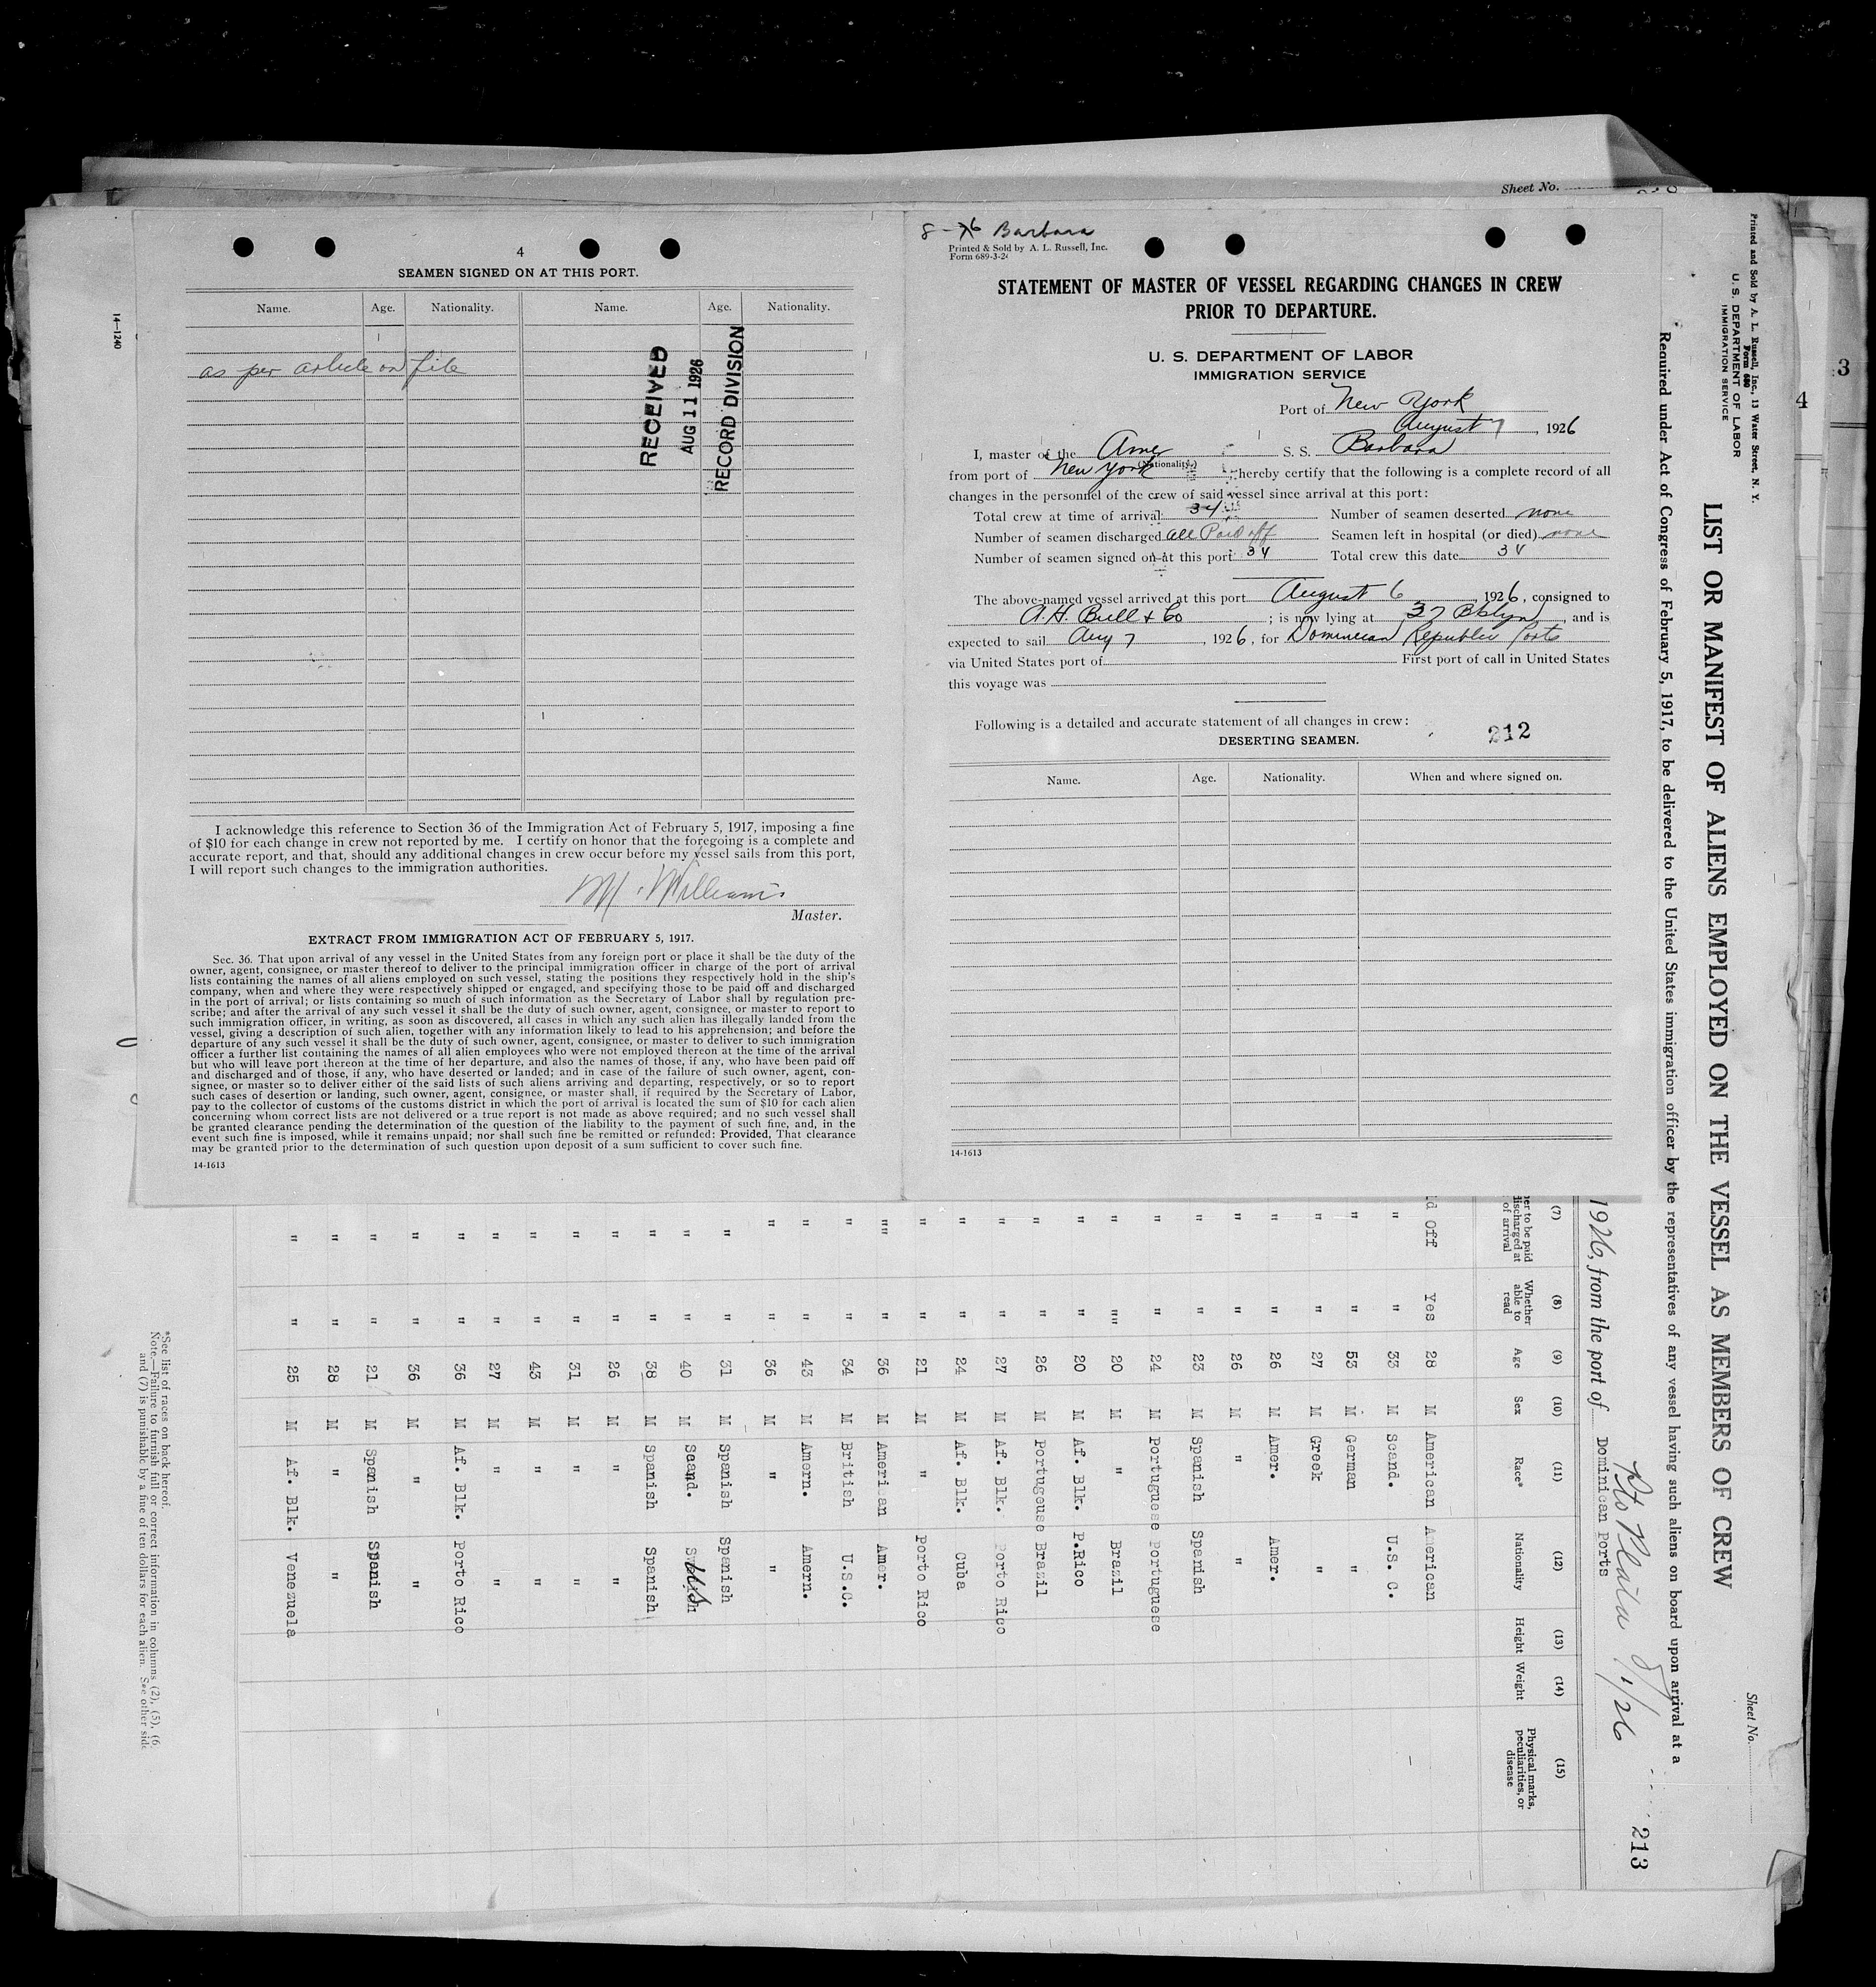 Sheet No.
4
SEAMEN SIGNED ON AT THIS PORT.
Name. Age. Nationality. Name. Age. Nationality.
as per article on file
RECEIVED
AUG 11 1926
RECORD DIVISION
I acknowledge this reference to Section 36 of the Immigration Act of February 5, 1917, imposing a fine
of $10 for each change in crew not reported by me. I certify on honor that the foregoing is a complete and
accurate report, and that, should any additional changes in crew occur before my vessel sails from this port,
I will report such changes to the immigration authorities.
M. Williams
Master.
EXTRACT FROM IMMIGRATION ACT OF FEBRUARY 5, 1917.
Sec. 36. That upon arrival of any vessel in the United States from any foreign port or place it shall be the duty of the
owner, agent, consignee, or master thereof to deliver to the principal immigration officer in charge of the port of arrival
lists containing the names of all aliens employed on such vessel, stating the positions they respectively hold in the ship's
company, when and where they were respectively shipped or engaged, and specifying those to be paid off and discharged
in the port of arrival; or lists containing so much of such information as the Secretary of Labor shall by regulation pre-
scribe; and after the arrival of any such vessel it shall be the duty of such owner, agent, consignee, or master to report to
such immigration officer, in writing, as soon as discovered, all cases in which any such alien has illegally landed from the
vessel, giving a description of such alien, together with any information likely to lead to his apprehension; and before the
departure of any such vessel it shall be the duty of such owner, agent, consignee, or master to deliver to such immigration
officer a further list containing the names of all alien employees who were not employed thereon at the time of the arrival
but who will leave port thereon at the time of her departure, and also the names of those, if any, who have been paid off
and discharged and of those, if any, who have deserted or landed; and in case of the failure of such owner, agent, con-
signee, or master so to deliver either of the said lists of such aliens arriving and departing, respectively, or so to report
such cases of desertion or landing, such owner, agent, consignee, or master shall, if required by the Secretary of Labor,
pay to the collector of customs of the customs district in which the port of arrival is located the sum of $10 for each alien
concerning whom correct lists are not delivered or a true report is not made as above required; and no such vessel shall
be granted clearance pending the determination of the question of the liability to the payment of such fine, and, in the
event such fine is imposed, while it remains unpaid; nor shall such fine be remitted or refunded: Provided, That clearance
may be granted prior to the determination of such question upon deposit of a sum sufficient to cover such fine.
14-1613
8- 6 Barbara
Printed & Sold by A. L. Russell, Inc.
Form 689-3-24
STATEMENT OF MASTER OF VESSEL REGARDING CHANGES IN CREW
PRIOR TO DEPARTURE.
U. S. DEPARTMENT OF LABOR
IMMIGRATION SERVICE
Port of New York
August 7, 1926
I, master of the Amer S. S. Barbara
(Nationality.)
from port of New York, hereby certify that the following is a complete record of all
changes in the personnel of the crew of said vessel since arrival at this port:
Total crew at time of arrival: 34 Number of seamen deserted none
Number of seamen discharged All Paid off Seamen left in hospital (or died) none
Number of seamen signed on at this port 34 Total crew this date 34
The above-named vessel arrived at this port August 6, 1926, consigned to
A. H. Bull & Co; is now lying at 37 Bklyn, and is
expected to sail Aug 7, 1926, for Dominican Republic Ports
via United States port of First port of call in United States
this voyage was
Following is a detailed and accurate statement of all changes in crew:
212
DESERTING SEAMEN.
Name. Age. Nationality. When and where signed on.
14-1613
14-1240
3
4
Printed and Sold by A. L. Russell, Inc., 13 Water Street, N. Y.
Form 680
U. S. DEPARTMENT OF LABOR
IMMIGRATION SERVICE
Sheet No.
LIST OR MANIFEST OF ALIENS EMPLOYED ON THE VESSEL AS MEMBERS OF CREW
Required under Act of Congress of February 5, 1917, to be delivered to the United States immigration officer by the representatives of any vessel having such aliens on board upon arrival at a
Pto Plata 8/1/26
213
1926, from the port of Dominican Ports
(7) (8) (9) (10) (11) (12) (13) (14) (15)
her to be paid discharged at of arrival Whether able to read Age Sex Race* Nationality Height Weight Physical marks, peculiarities, or disease
d Off Yes 28 M American American
" " 33 M Scand. U.S. C.
" " 53 M German "
" " 27 M Greek "
" " 26 M Amer. Amer.
" " 26 M " "
" " 23 M Spanish Spanish
" " 24 M Portuguese Portuguese
" " 20 M " Brazil
" " 20 M Af. Blk. P.Rico
" " 26 M Portugeuse Brazil
" " 27 M Af. Blk. Porto Rico
" " 24 M Af. Blk. Cuba
" " 21 M " Porto Rico
" " 36 M American Amer.
" " 34 M British U.S.C.
" " 43 M Amern. Amern.
" " 36 M " "
" " 31 M Spanish Spanish
" " 40 M Scand.
" " 38 M Spanish Spanish
" " 26 M " "
" " 31 M " "
" " 43 M " "
" " 27 M " "
" " 36 M Af. Blk. Porto Rico
" " 36 M " "
" " 21 M Spanish Spanish
" " 28 M " "
" " 25 M Af. Blk. Venezuela
*See list of races on back hereof.
Note.—Failure to furnish full or correct information in columns (2), (5), (6
and (7) is punishable by a fine of ten dollars for each alien. See other side